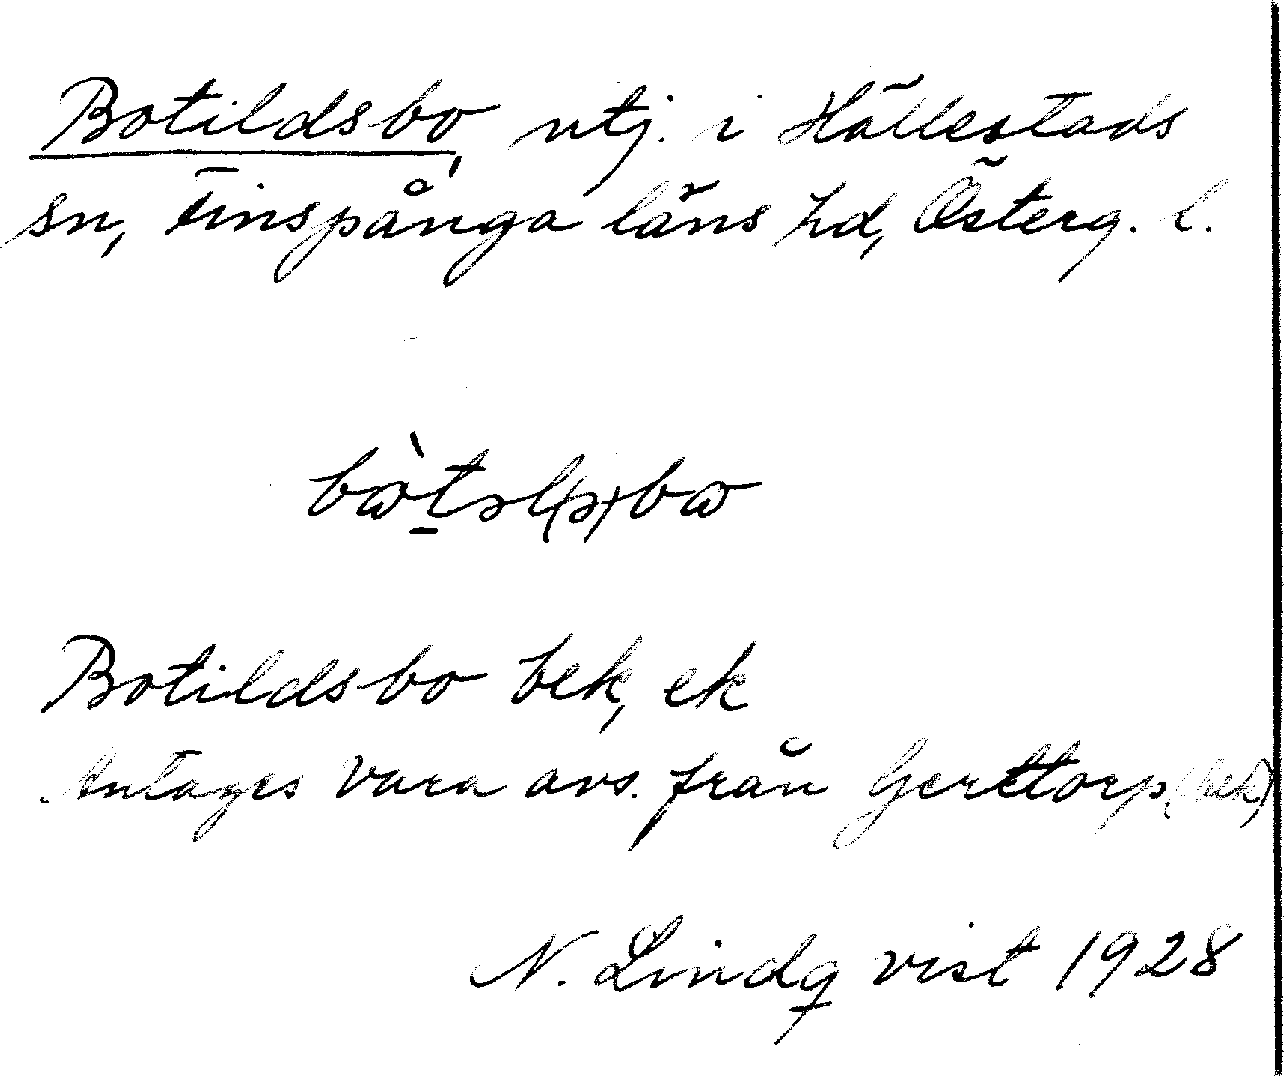 Botildsbo, utj. i Hällestads
sn, Finspånga läns hd, Österg. l.
bὼtəl(s)bω
Botildsbo bek, ek
Antages vara avs. från Gerttorp (bek)
N. Lindqvist 1928